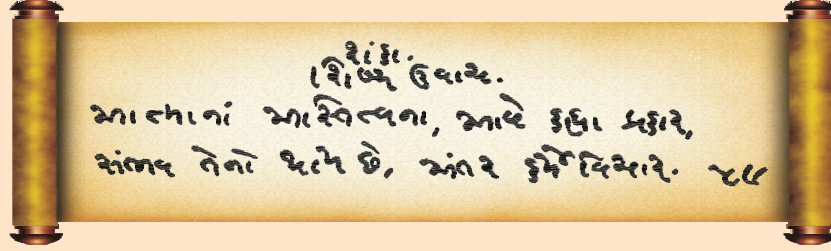 શંકા.
શિષ્ય ઉવાચ.
આત્માનાં અસ્તિત્વના, આપે કહ્યા પ્રકાર,
સંભવ તેનો થાય છે, અંતર કર્યે વિચાર. ૫૯